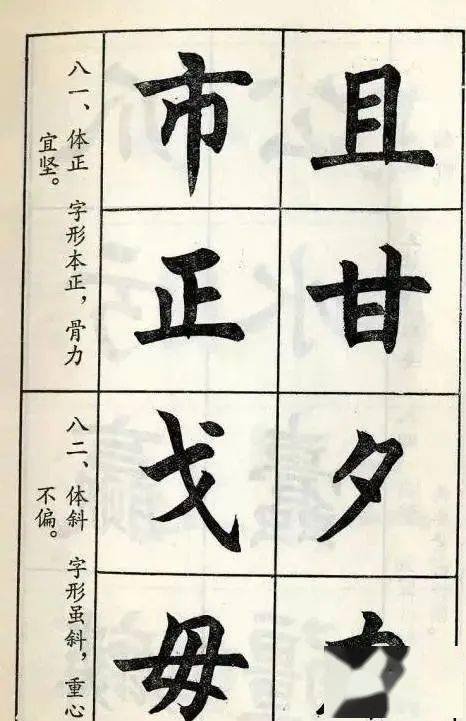 且甘夕
市正戈毋
八一、体正 字形本正，骨力
宜坚。
八二、体斜 字形虽斜，重心
不偏。